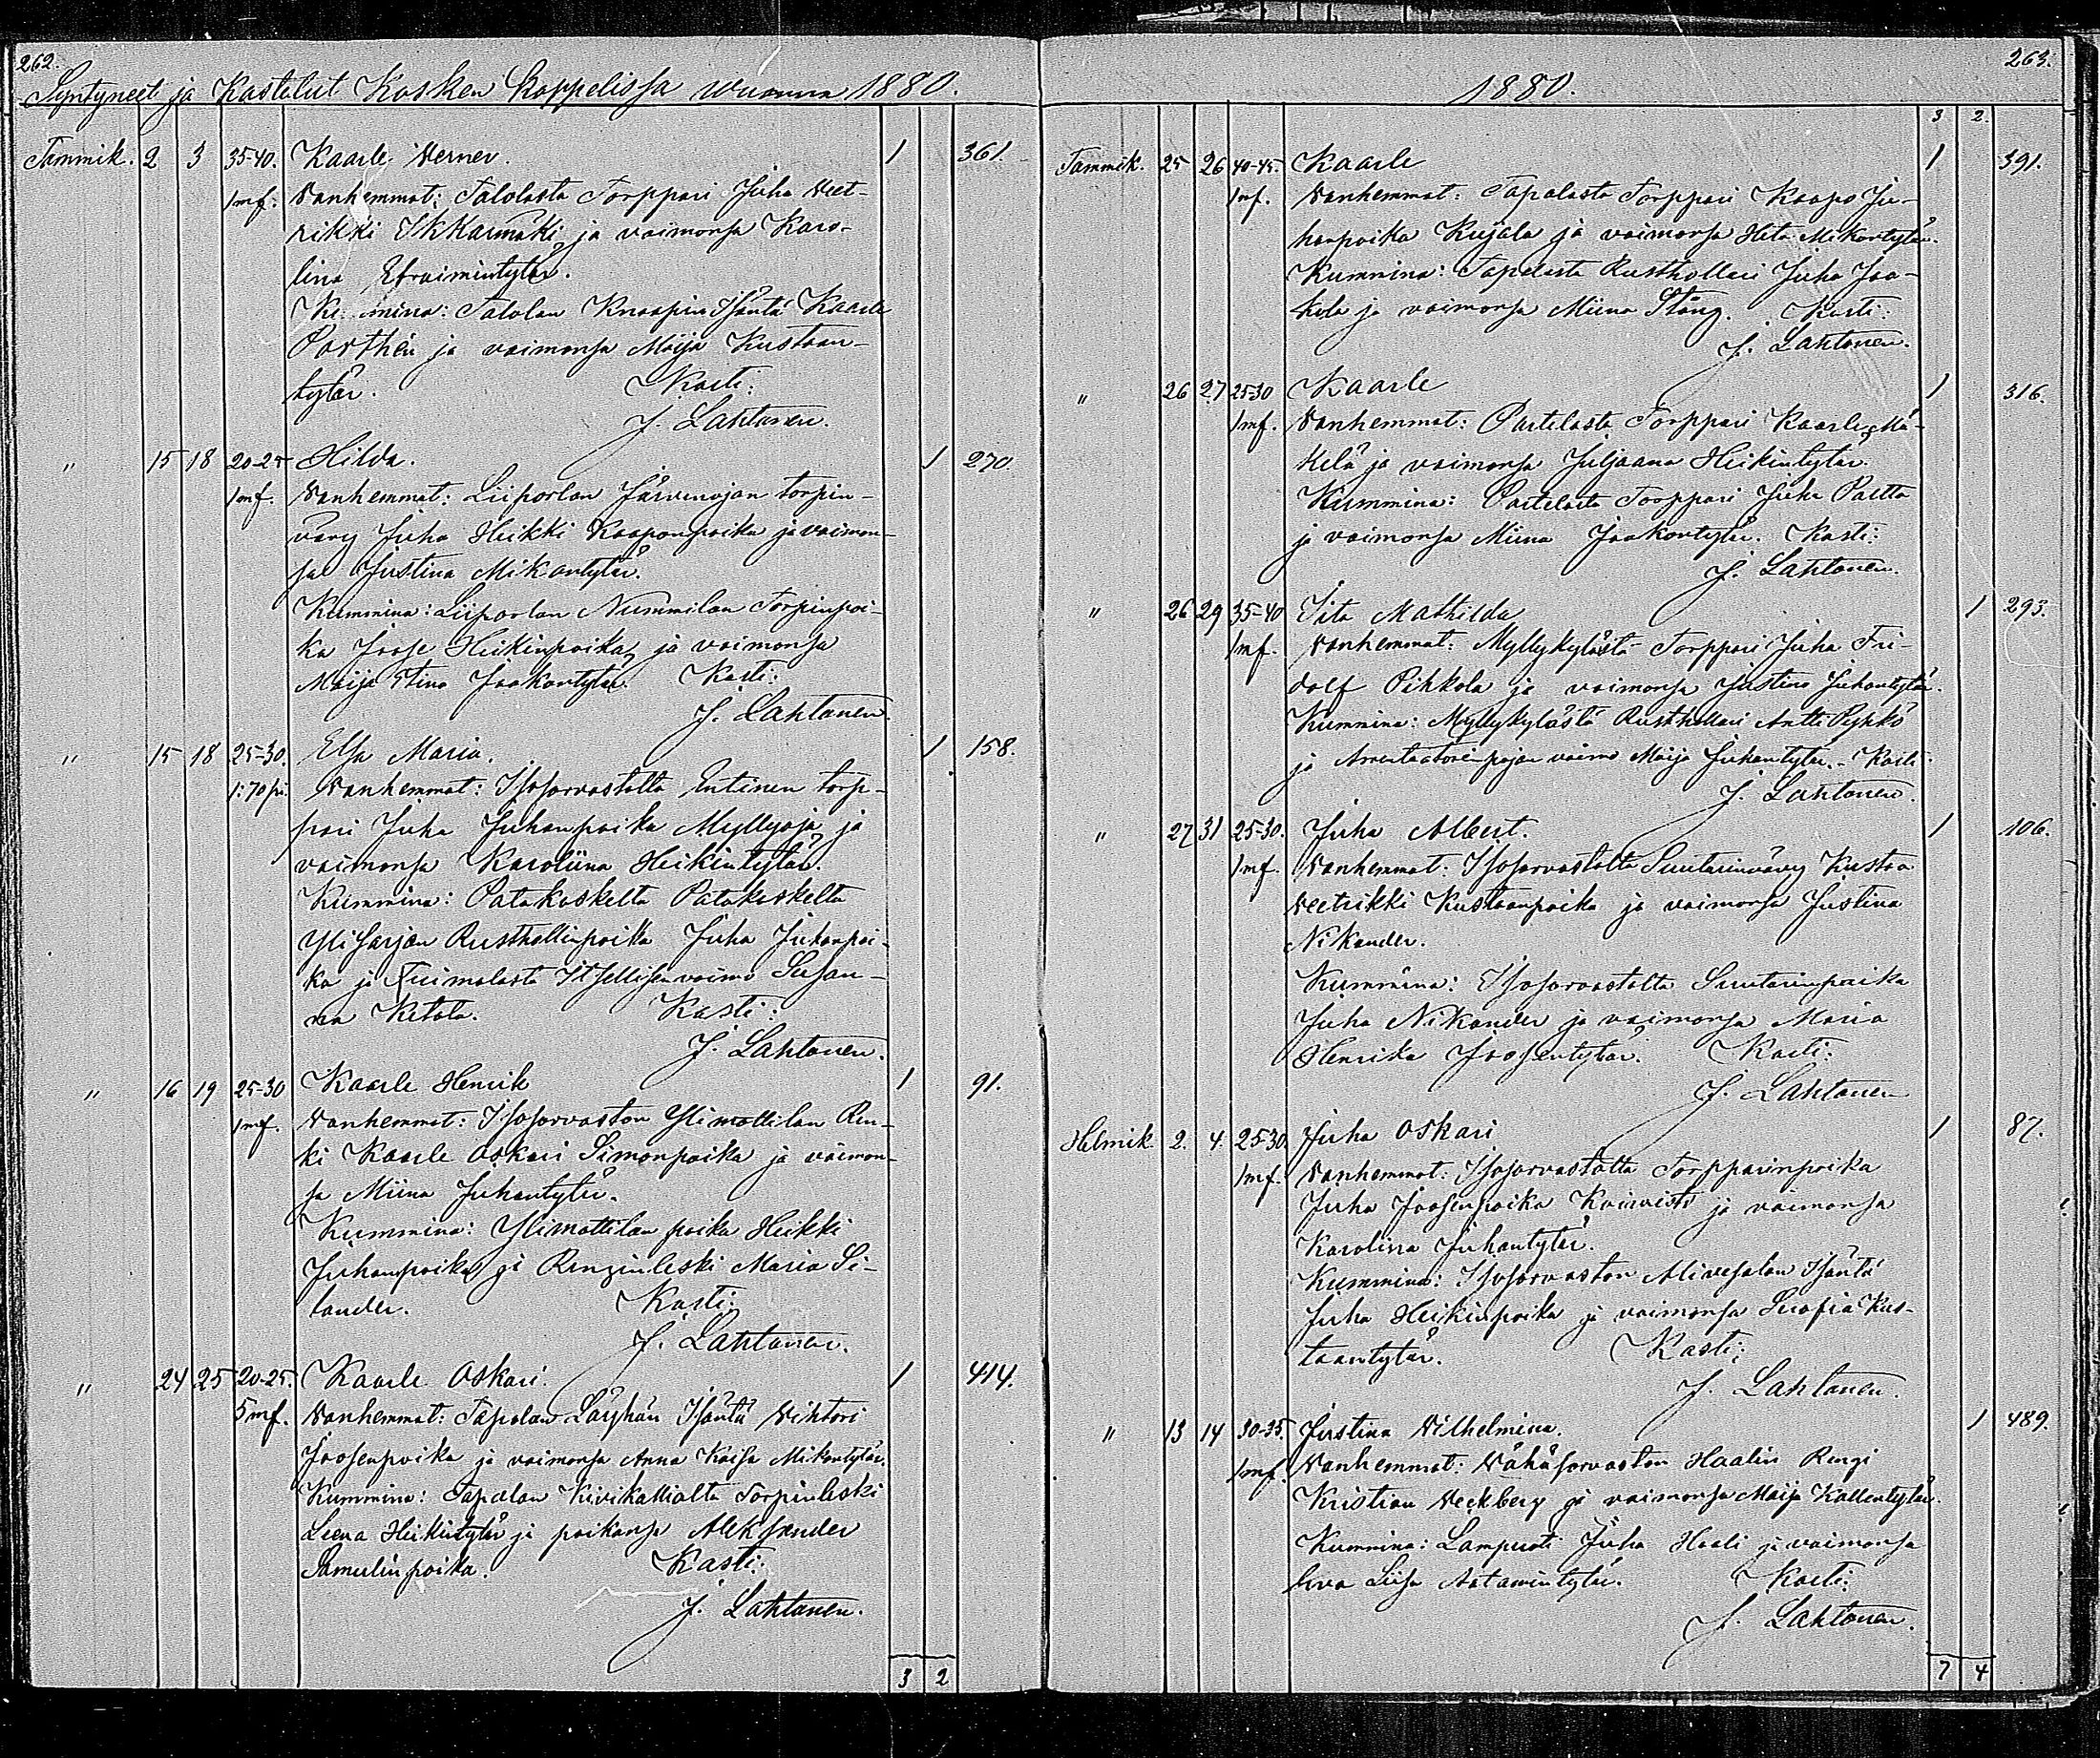 262.
Syntyneet ja Kastetut Kosken Kappelissa wuonna 1880.
Tammik. 2 3 35-40. Kaarle Verner. 1 361.
1 mf. Vanhemmat: Talolasta Torppari Juha Veet-
rikki Ikkarmäki ja vaimonsa Karo-
lina Efraimintytär.
Kummina: Talolan Knaapin Isäntä Kaarle
Porthén ja vaimonsa Maija Kustaan-
tytär. Kasti:
J. Lahtonen.
" 15 18 20-25 Hilda. 1 270.
1 mf. Vanhemmat: Liiporlan Järvenojan torpin-
vävy Juha Heikki Kaaponpoika ja vaimon-
sa Justina Mikontytär.
Kummina: Liiporlan Nummilan Torpinpoi-
ka Joose Heikinpoika ja vaimonsa
Maija Stina Jaakontytär. Kasti:
J. Lahtonen.
" 15 18 25-30. Elsa Maria. 1 158.
1:70 pi. Vanhemmat: Isosorvastolta Entinen torp-
pari Juha Juhanpoika Myllyoja ja
vaimonsa Karoliina Heikintytär.
Kummina: Patakoskelta Patakoskelta
Ylisarjan Rusthollinpoika Juha Juhanpoi-
ka ja Tuimalasta Itsellisenvaimo Susan-
na Ketola. Kasti:
J. Lahtonen.
" 16 19 25-30 Kaarle Henrik 1 91.
1 mf. Vanhemmat: Isosorvaston Ylimattilan Ren-
ki Kaarle Oskari Simonpoika ja vaimon-
sa Miina Juhantytär.
Kummina: Ylimattilan poika Heikki
Juhanpoika ja Renginleski Maria Se-
lander. Kasti:
J. Lahtonen.
" 24 25 20-25. Kaarle Oskari. 1 414.
5 mf. Vanhemmat: Tapolan Läyhän Isäntä Vihtori
Joosenpoika ja vaimonsa Anna Kaisa Mikontytär.
Kummina: Tapolan Kivikalliolta Torpinleski
Leena Heikintytär ja poikansa Aleksander
Samulinpoika. Kasti:
J. Lahtonen.
3 2
263.
1880.
3 2.
Tammik. 25 26 40-45. Kaarle 1 391.
1 mf. Vanhemmat: Tapolasta Torppari Kaapo Ju-
hanpoika Kujala ja vaimonsa Heta Mikontytär.
Kummina: Tapolasta Rusthollari Juha Jaa-
kola ja vaimonsa Miina Stäng. Kasti:
J. Lahtonen.
" 26 27 25-30 Kaarle 1 316.
1 mf. Vanhemmat: Partelasta Torppari Kaarle Mä-
kelä ja vaimonsa Juljaana Heikintytär.
Kummina: Partelasta Torppari Juha Partta
ja vaimonsa Miina Jaakontytär. Kasti:
J. Lahtonen.
" 26 29 35-40 Iita Mathilda 1 293.
1 mf. Vanhemmat: Myllykylästä Torppari Juha Fri-
dolf Pihkola ja vaimonsa Justina Juhantytär.
Kummina: Myllykylästä Rusthollari Antti Pyhkö
ja Arrentaatorinpojan vaimo Maija Juhantytär. Kasti:
J. Lahtonen.
" 27 31 25-30. Juha Albert. 1 106.
1 mf. Vanhemmat: Isosorvastolta Suutarinvävy Kustaa
Veetrikki Kustaanpoika ja vaimonsa Justina
Nikander.
Kummina: Isosorvastolta Suutarinpoika
Juha Nikander ja vaimonsa Maria
Henrika Joosentytär. Kasti:
J. Lahtonen
Helmik 2. 4. 25-30. Juha Oskari 1 87.
1 mf. Vanhemmat: Isosorvastolta Torpparinpoika
Juha Joosenpoika Koivisto ja vaimonsa
Karolina Juhantytär.
Kummina: Isosorvaston Alivesalan Isäntä
Juha Heikinpoika ja vaimonsa Suofia Kus-
taantytär. Kasti:
J. Lahtonen.
" 13 14 30-35. Justina Vilhelmina. 1 489.
1 mf. Vanhemmat: Vähäsorvaston Haalin Rengi
Kristian Veckberg ja vaimonsa Maija Kallentytär.
Kummina: Lampuoti Juha Haali ja vaimonsa
Eeva Liisa Aatamintytär. Kasti:
J. Lahtonen.
7 4